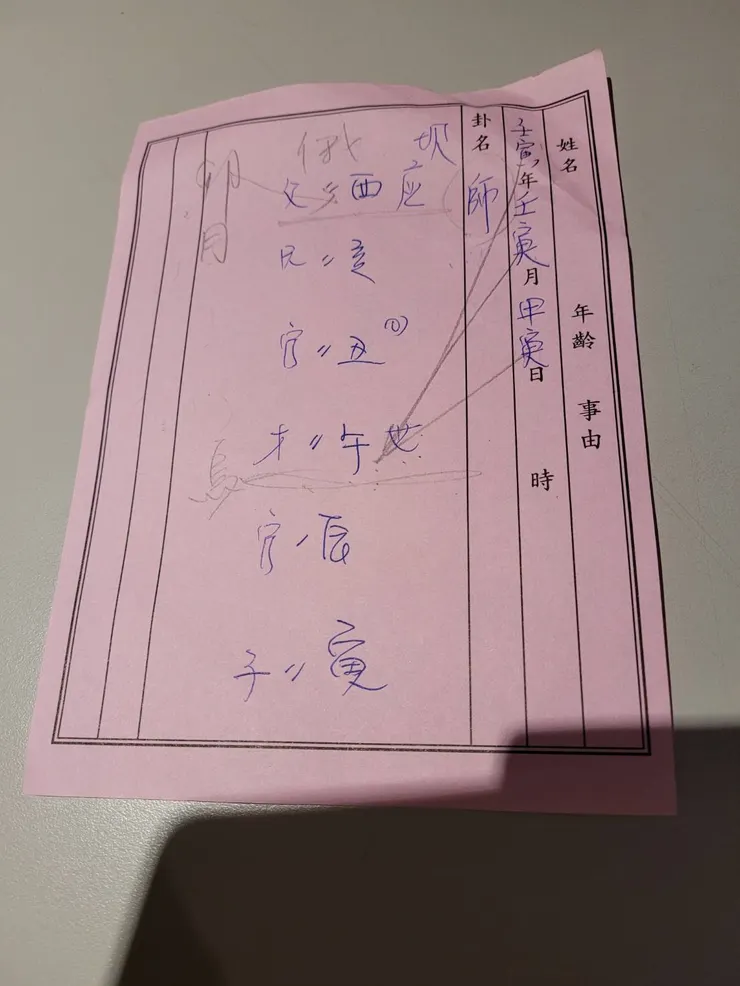 姓名 年齡 事由
壬寅年壬寅月甲寅日 時
卦名 師
俄 坎
父〃酉应
兄〃亥
官〃丑
才〃午世
官丶辰
子〃寅
卯月
烏